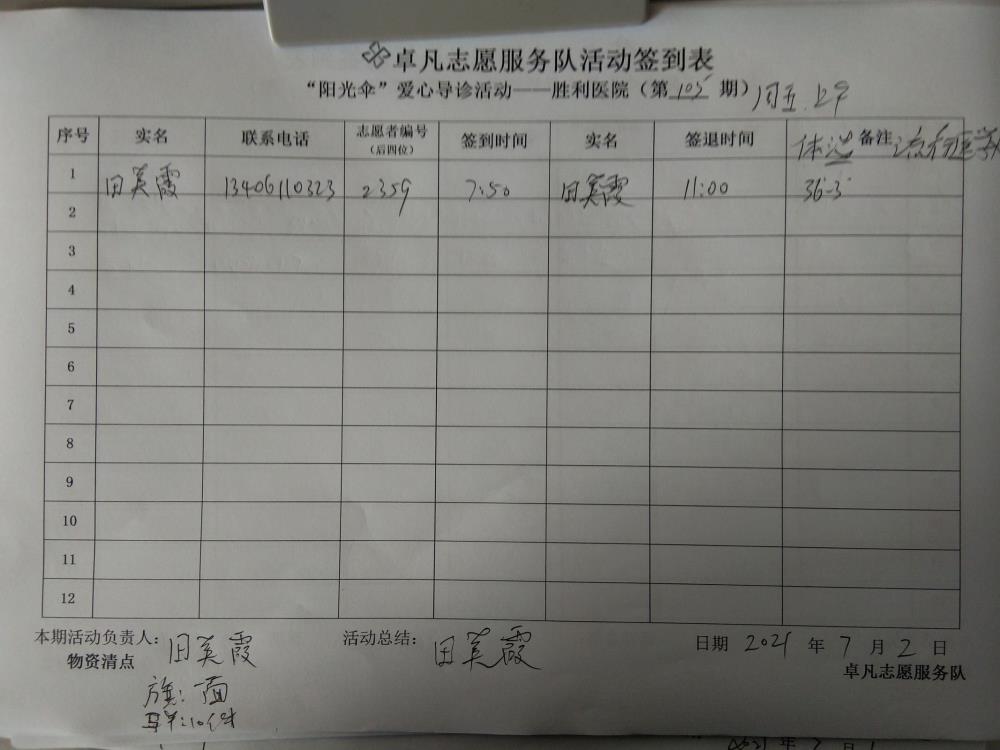 卓凡志愿服务队活动签到表
“阳光伞”爱心导诊活动——胜利医院（第 105 期）周五
序号 实名 联系电话 志愿者编号（后四位） 签到时间 实名 签退时间 备注 体温
1 田美霞 13406110323 2359 7:50 田美霞 11:00 36·3
2
3
4
5
6
7
8
9
10
11
12
本期活动负责人：田美霞 活动总结：田美霞 日期 2021 年 7 月 2 日
物资清点 卓凡志愿服务队
旗：面